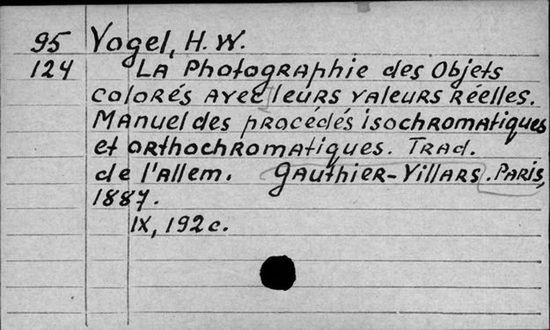 95 Vogel, H. W.
124 La Photographie des Objets
colorés avec leurs valeurs réelles.
Manuel des procédés isochromatiques
et orthochromatiques. Trad.
de l'allem. Gauthier-Villars. Paris,
1887.
IX, 192 c.